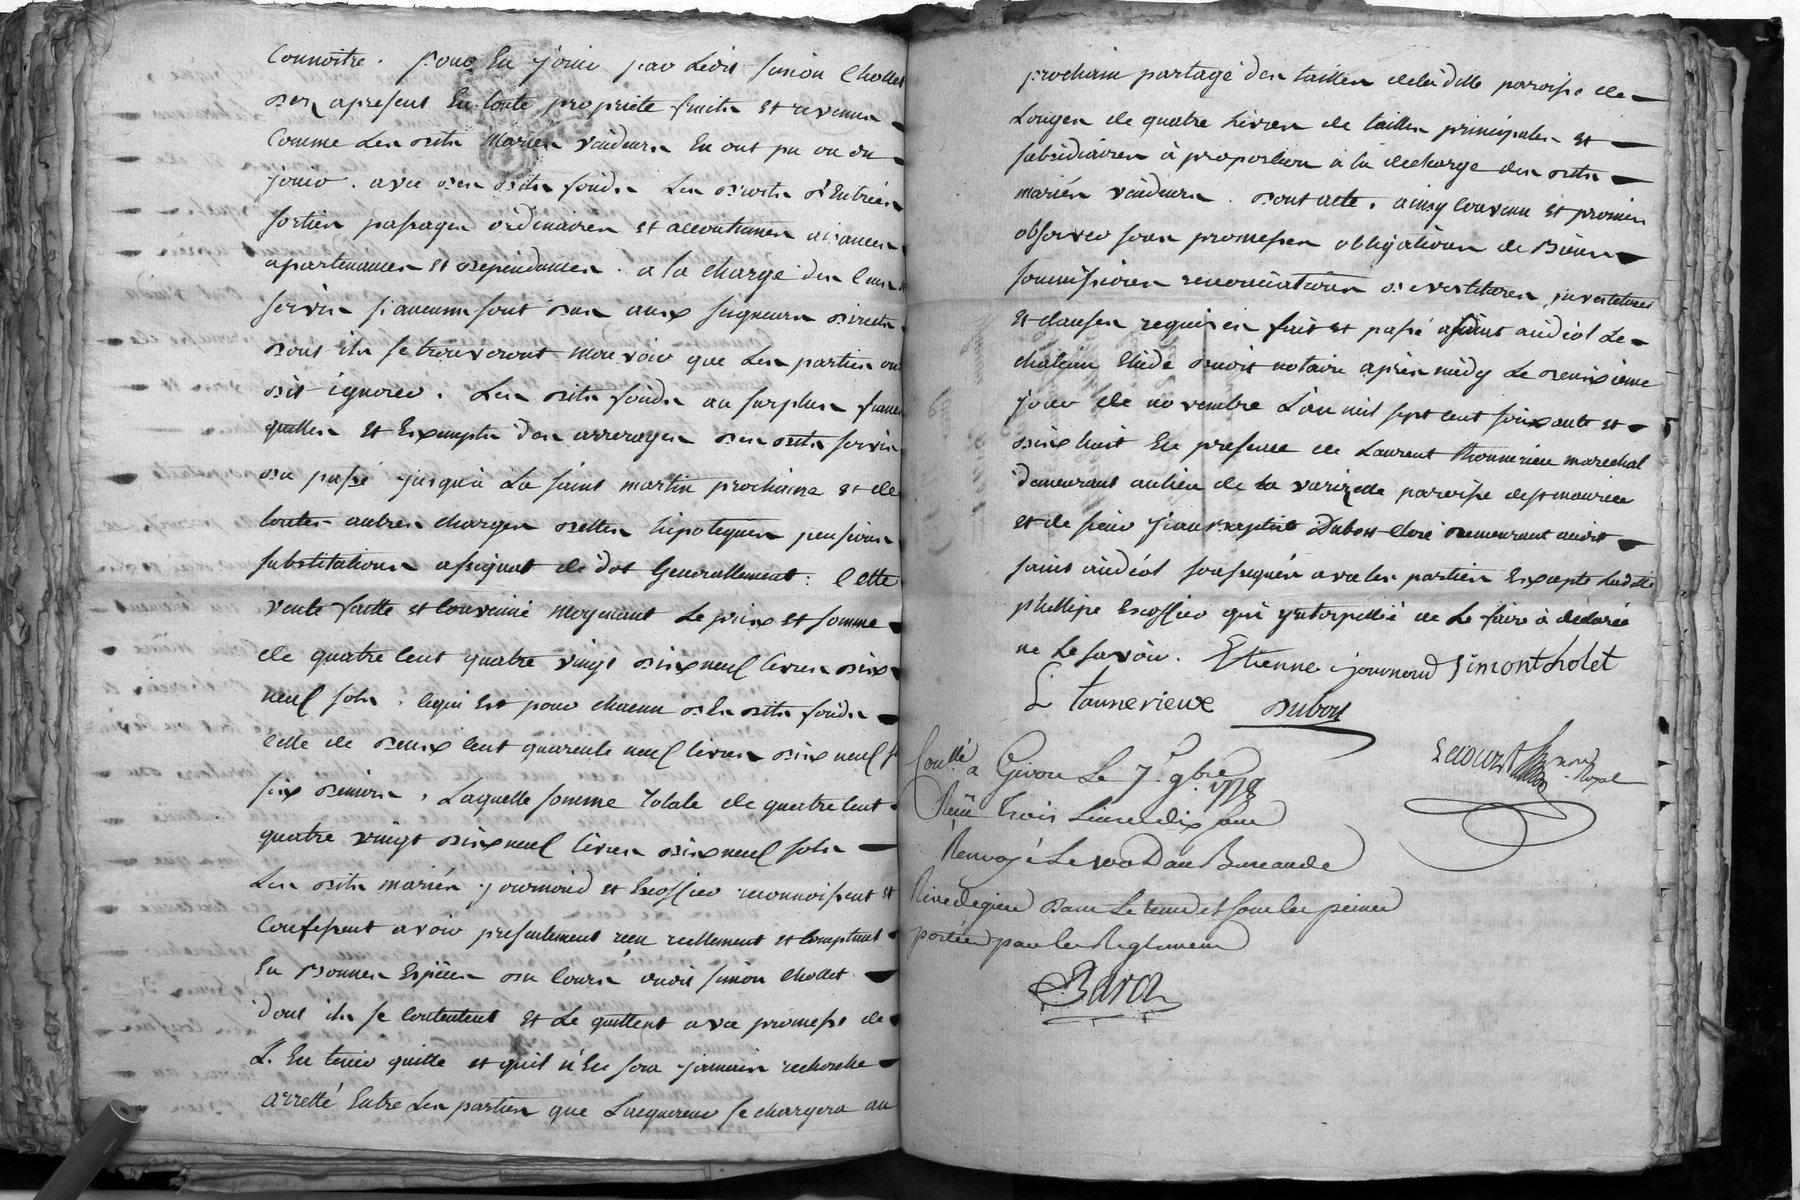 Connoitre. pour En jouir par Ledit simon Chollet
des apresent En toute propriete fruits et revenus
Comme Les dits Mariés vendeurs En ont pu ou du
jouir. avec des dits fonds Les droits d'Entrées
sorties passages ordinaires et accoutumés aisances
apartenances et dependances. a la charge des Cens
servis si aucuns sont dus aux seigneurs directs
dont ils se trouveront Mouvoir que Les parties ont
dit ignorer. Les dits fonds au surplus francs
quittes et Exempts des arrerages des dits servis
du passé jusqu'a La saint martin prochaine et de
toutes autres charges dettes hipoteques pensions
substitutions assignat de dot Generallement: Cette
vente faitte et Convenue moyenant Le prix et somme
de quatre Cent quatre vingt dix neuf livres dix
neuf sols. Ce qui Est pour chacun des dits fonds
Celle de deux Cent quarente neuf livres dix neuf s
six deniers. Laquelle somme Totale de quatre Cent
quatre vingt dix neuf livres dix neuf sols
Les dits mariés journoud et Escoffier reconnoissent et
Confessent avoir presentement reçu reellement et Comptant
En Bonnes Espèces du Cours dudit simon Chollet
dont ils se Contentent et Le quittent avec promesse de
L'En tenir quitte et qu'il n'En sera jamais recherché
arretté Entre Les parties que L'acquereur se chargera au
prochain partage des tailles de la ditte paroisse de
Longes de quatre Livres de tailles principales et
subsidiaires à proportion a la decharge des dits
mariés vendeurs. dont acte. ainsy Convenu et promis
observer sous promesses obligations de Biens
soumissions renonciations devestitures investitures
et clauses requises fait et passé a saint andéol Le
chateau Etude dudit notaire après midy Le deuxieme
jour de novembre L'an mil sept Cent soixante et
dix huit En presence de Laurent Thonnerieu marechal
demeurant au lieu de la varizelle paroisse de st maurice
et de sieur jean Baptiste Dubost clerc demeurant audit
saint andéol soussignés avec les parties Excepté Laditte
phillipe Escoffier qui ynterpellée de Le faire à déclaré
ne Le savoir. Etienne journoud Simont Cholet
L tonnerieux Dubost
Lecourt no.re Royal
Con.llé a Givors Le 7.e 9bre 1778
Reçu trois Livre dix sous
Renvoyé Le 100.e D au Bureau de
Rivedegier dans Le temps et sous les peines
portées par les Reglemens
Barou